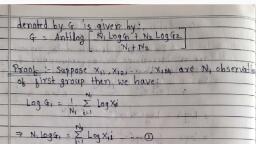 denoted by G is given by:
G = Antilog [ N₁ Log G₁ + N₂ Log G₂ / N₁ + N₂ ]
Proof :- Suppose x₁₁, x₁₂, ..., x₁ₙ₁ are N₁ observati
of first group then we have:
Log G₁ = 1/N₁ Σ Log x₁ᵢ
⇒ N₁ Log G₁ = Σ Log x₁ᵢ ... ①